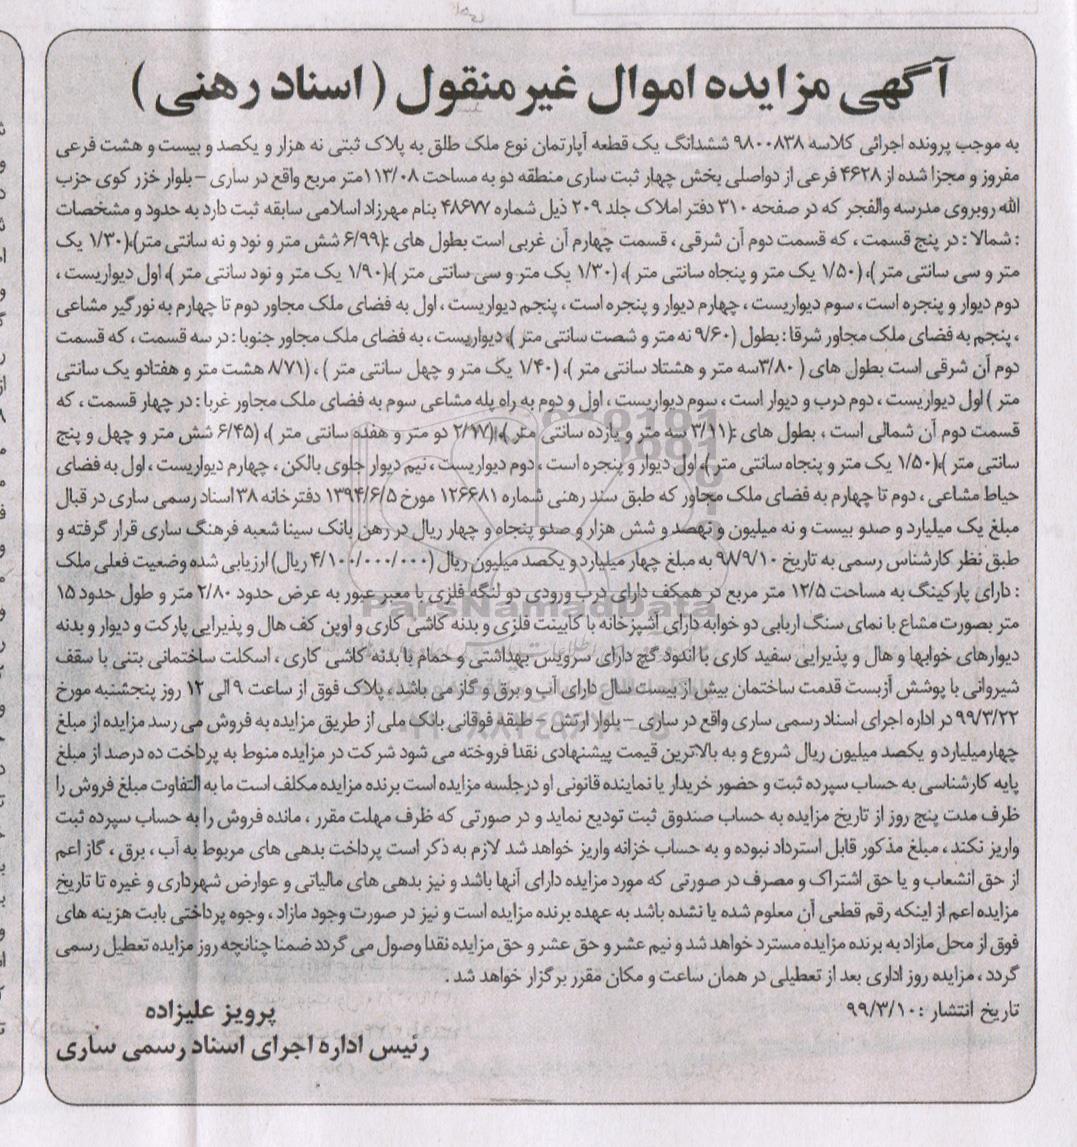 آگهی مزایده اموال غیرمنقول ( اسناد رهنی )
به موجب پرونده اجرائی کلاسه ۹۸۰۰۸۳۸ ششدانگ یک قطعه آپارتمان نوع ملک طلق به پلاک ثبتی نه هزار و یکصد و بیست و هشت فرعی
مفروز و مجزا شده از ۴۶۲۸ فرعی از دواصلی بخش چهار ثبت ساری منطقه دو به مساحت ۱۱۳/۰۸متر مربع واقع در ساری – بلوار خزر کوی حزب
الله روبروی مدرسه والفجر که در صفحه ۳۱۰ دفتر املاک جلد ۲۰۹ ذیل شماره ۴۸۶۷۷ بنام مهرزاد اسلامی سابقه ثبت دارد به حدود و مشخصات
: شمالا : در پنج قسمت ، که قسمت دوم آن شرقی ، قسمت چهارم آن غربی است بطول های :(۶/۹۹ شش متر و نود و نه سانتی متر)،(۱/۳۰ یک
متر و سی سانتی متر )، (۱/۵۰ یک متر و پنجاه سانتی متر )، (۱/۳۰ یک متر و سی سانتی متر )،(۱/۹۰ یک متر و نود سانتی متر )، اول دیواریست ،
دوم دیوار و پنجره است ، سوم دیواریست ، چهارم دیوار و پنجره است ، پنجم دیواریست ، اول به فضای ملک مجاور دوم تا چهارم به نورگیر مشاعی
، پنجم به فضای ملک مجاور شرقا : بطول (۹/۶۰ نه متر و شصت سانتی متر )، دیواریست ، به فضای ملک مجاور جنوبا : در سه قسمت ، که قسمت
دوم آن شرقی است بطول های ( ۳/۸۰سه متر و هشتاد سانتی متر )، (۱/۴۰ یک متر و چهل سانتی متر ) ، (۸/۷۱ هشت متر و هفتادو یک سانتی
متر ) اول دیواریست ، دوم درب و دیوار است ، سوم دیواریست ، اول و دوم به راه پله مشاعی سوم به فضای ملک مجاور غربا : در چهار قسمت ، که
قسمت دوم آن شمالی است ، بطول های :(۳/۱۱ سه متر و یازده سانتی متر )،(۲/۱۷ دو متر و هفده سانتی متر )، (۶/۴۵ شش متر و چهل و پنج
سانتی متر )،(۱/۵۰ یک متر و پنجاه سانتی متر )، اول دیوار و پنجره است ، دوم دیواریست ، نیم دیوار جلوی بالکن ، چهارم دیواریست ، اول به فضای
حیاط مشاعی ، دوم تا چهارم به فضای ملک مجاور که طبق سند رهنی شماره ۱۲۶۶۸۱ مورخ ۱۳۹۴/۶/۵ دفترخانه ۳۸اسناد رسمی ساری در قبال
مبلغ یک میلیارد و صدو بیست و نه میلیون و نهصد و شش هزار و صدو پنجاه و چهار ریال در رهن بانک سینا شعبه فرهنگ ساری قرار گرفته و
طبق نظر کارشناس رسمی به تاریخ ۹۸/۹/۱۰ به مبلغ چهار میلیارد و یکصد میلیون ریال (۴/۱۰۰/۰۰۰/۰۰۰ ریال) ارزیابی شده وضعیت فعلی ملک
: دارای پارکینگ به مساحت ۱۲/۵ متر مربع در همکف دارای درب ورودی دو لنگه فلزی با معبر عبور به عرض حدود ۲/۸۰ متر و طول حدود ۱۵
متر بصورت مشاع با نمای سنگ اربابی دو خوابه دارای آشپزخانه با کابینت فلزی و بدنه کاشی کاری و اوپن کف هال و پذیرایی پارکت و دیوار و بدنه
دیوارهای خوابها و هال و پذیرایی سفید کاری با اندود گچ دارای سرویس بهداشتی و حمام با بدنه کاشی کاری ، اسکلت ساختمانی بتنی با سقف
شیروانی با پوشش آزبست قدمت ساختمان بیش از بیست سال دارای آب و برق و گاز می باشد ، پلاک فوق از ساعت ۹ الی ۱۲ روز پنجشنبه مورخ
۹۹/۳/۲۲ در اداره اجرای اسناد رسمی ساری واقع در ساری – بلوار ارتش – طبقه فوقانی بانک ملی از طریق مزایده به فروش می رسد مزایده از مبلغ
چهارمیلیارد و یکصد میلیون ریال شروع و به بالاترین قیمت پیشنهادی نقدا فروخته می شود شرکت در مزایده منوط به پرداخت ده درصد از مبلغ
پایه کارشناسی به حساب سپرده ثبت و حضور خریدار یا نماینده قانونی او درجلسه مزایده است برنده مزایده مکلف است ما به التفاوت مبلغ فروش را
ظرف مدت پنج روز از تاریخ مزایده به حساب صندوق ثبت تودیع نماید و در صورتی که ظرف مهلت مقرر ، مانده فروش را به حساب سپرده ثبت
واریز نکند ، مبلغ مذکور قابل استرداد نبوده و به حساب خزانه واریز خواهد شد لازم به ذکر است پرداخت بدهی های مربوط به آب ، برق ، گاز اعم
از حق انشعاب و یا حق اشتراک و مصرف در صورتی که مورد مزایده دارای آنها باشد و نیز بدهی های مالیاتی و عوارض شهرداری و غیره تا تاریخ
مزایده اعم از اینکه رقم قطعی آن معلوم شده یا نشده باشد به عهده برنده مزایده است و نیز در صورت وجود مازاد ، وجوه پرداختی بابت هزینه های
فوق از محل مازاد به برنده مزایده مسترد خواهد شد و نیم عشر و حق عشر و حق مزایده نقدا وصول می گردد ضمنا چنانچه روز مزایده تعطیل رسمی
گردد ، مزایده روز اداری بعد از تعطیلی در همان ساعت و مکان مقرر برگزار خواهد شد .
تاریخ انتشار : ۹۹/۳/۱۰
پرویز علیزاده
رئیس اداره اجرای اسناد رسمی ساری
ParsNamadData